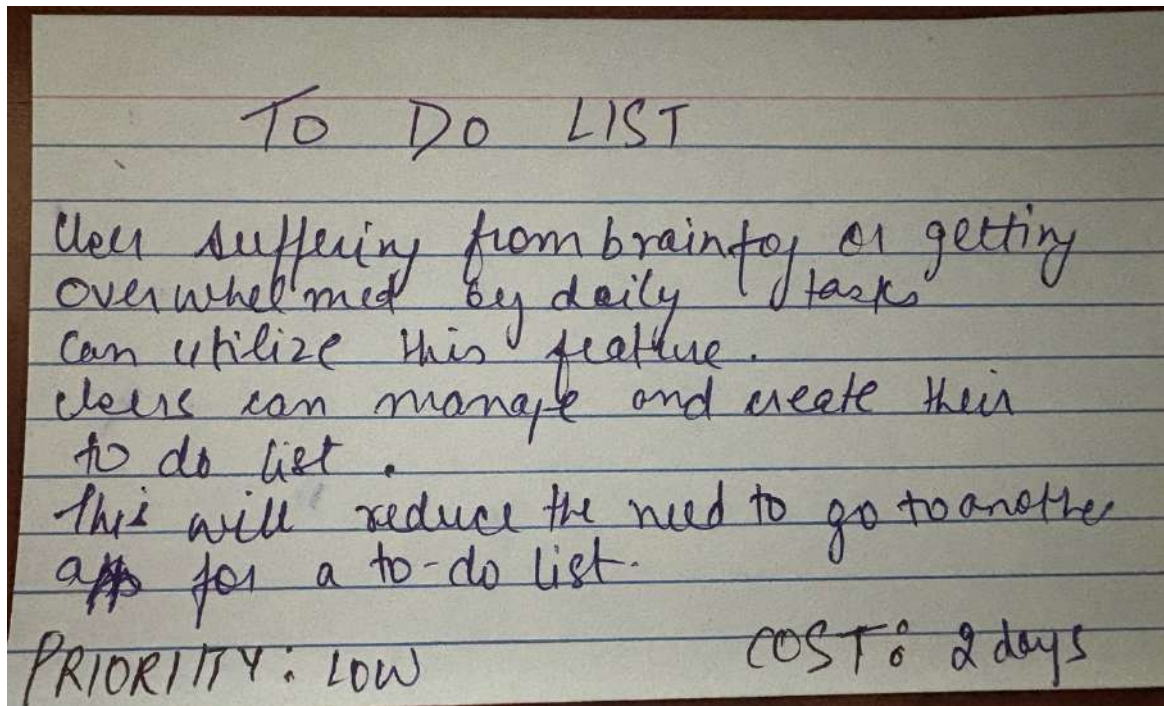 TO DO LIST
User suffering from brain fog or getting
overwhelmed by daily tasks
can utilize this feature.
Users can manage and create their
to do list.
This will reduce the need to go to another
app for a to-do list.
PRIORITY: LOW COST: 2 days